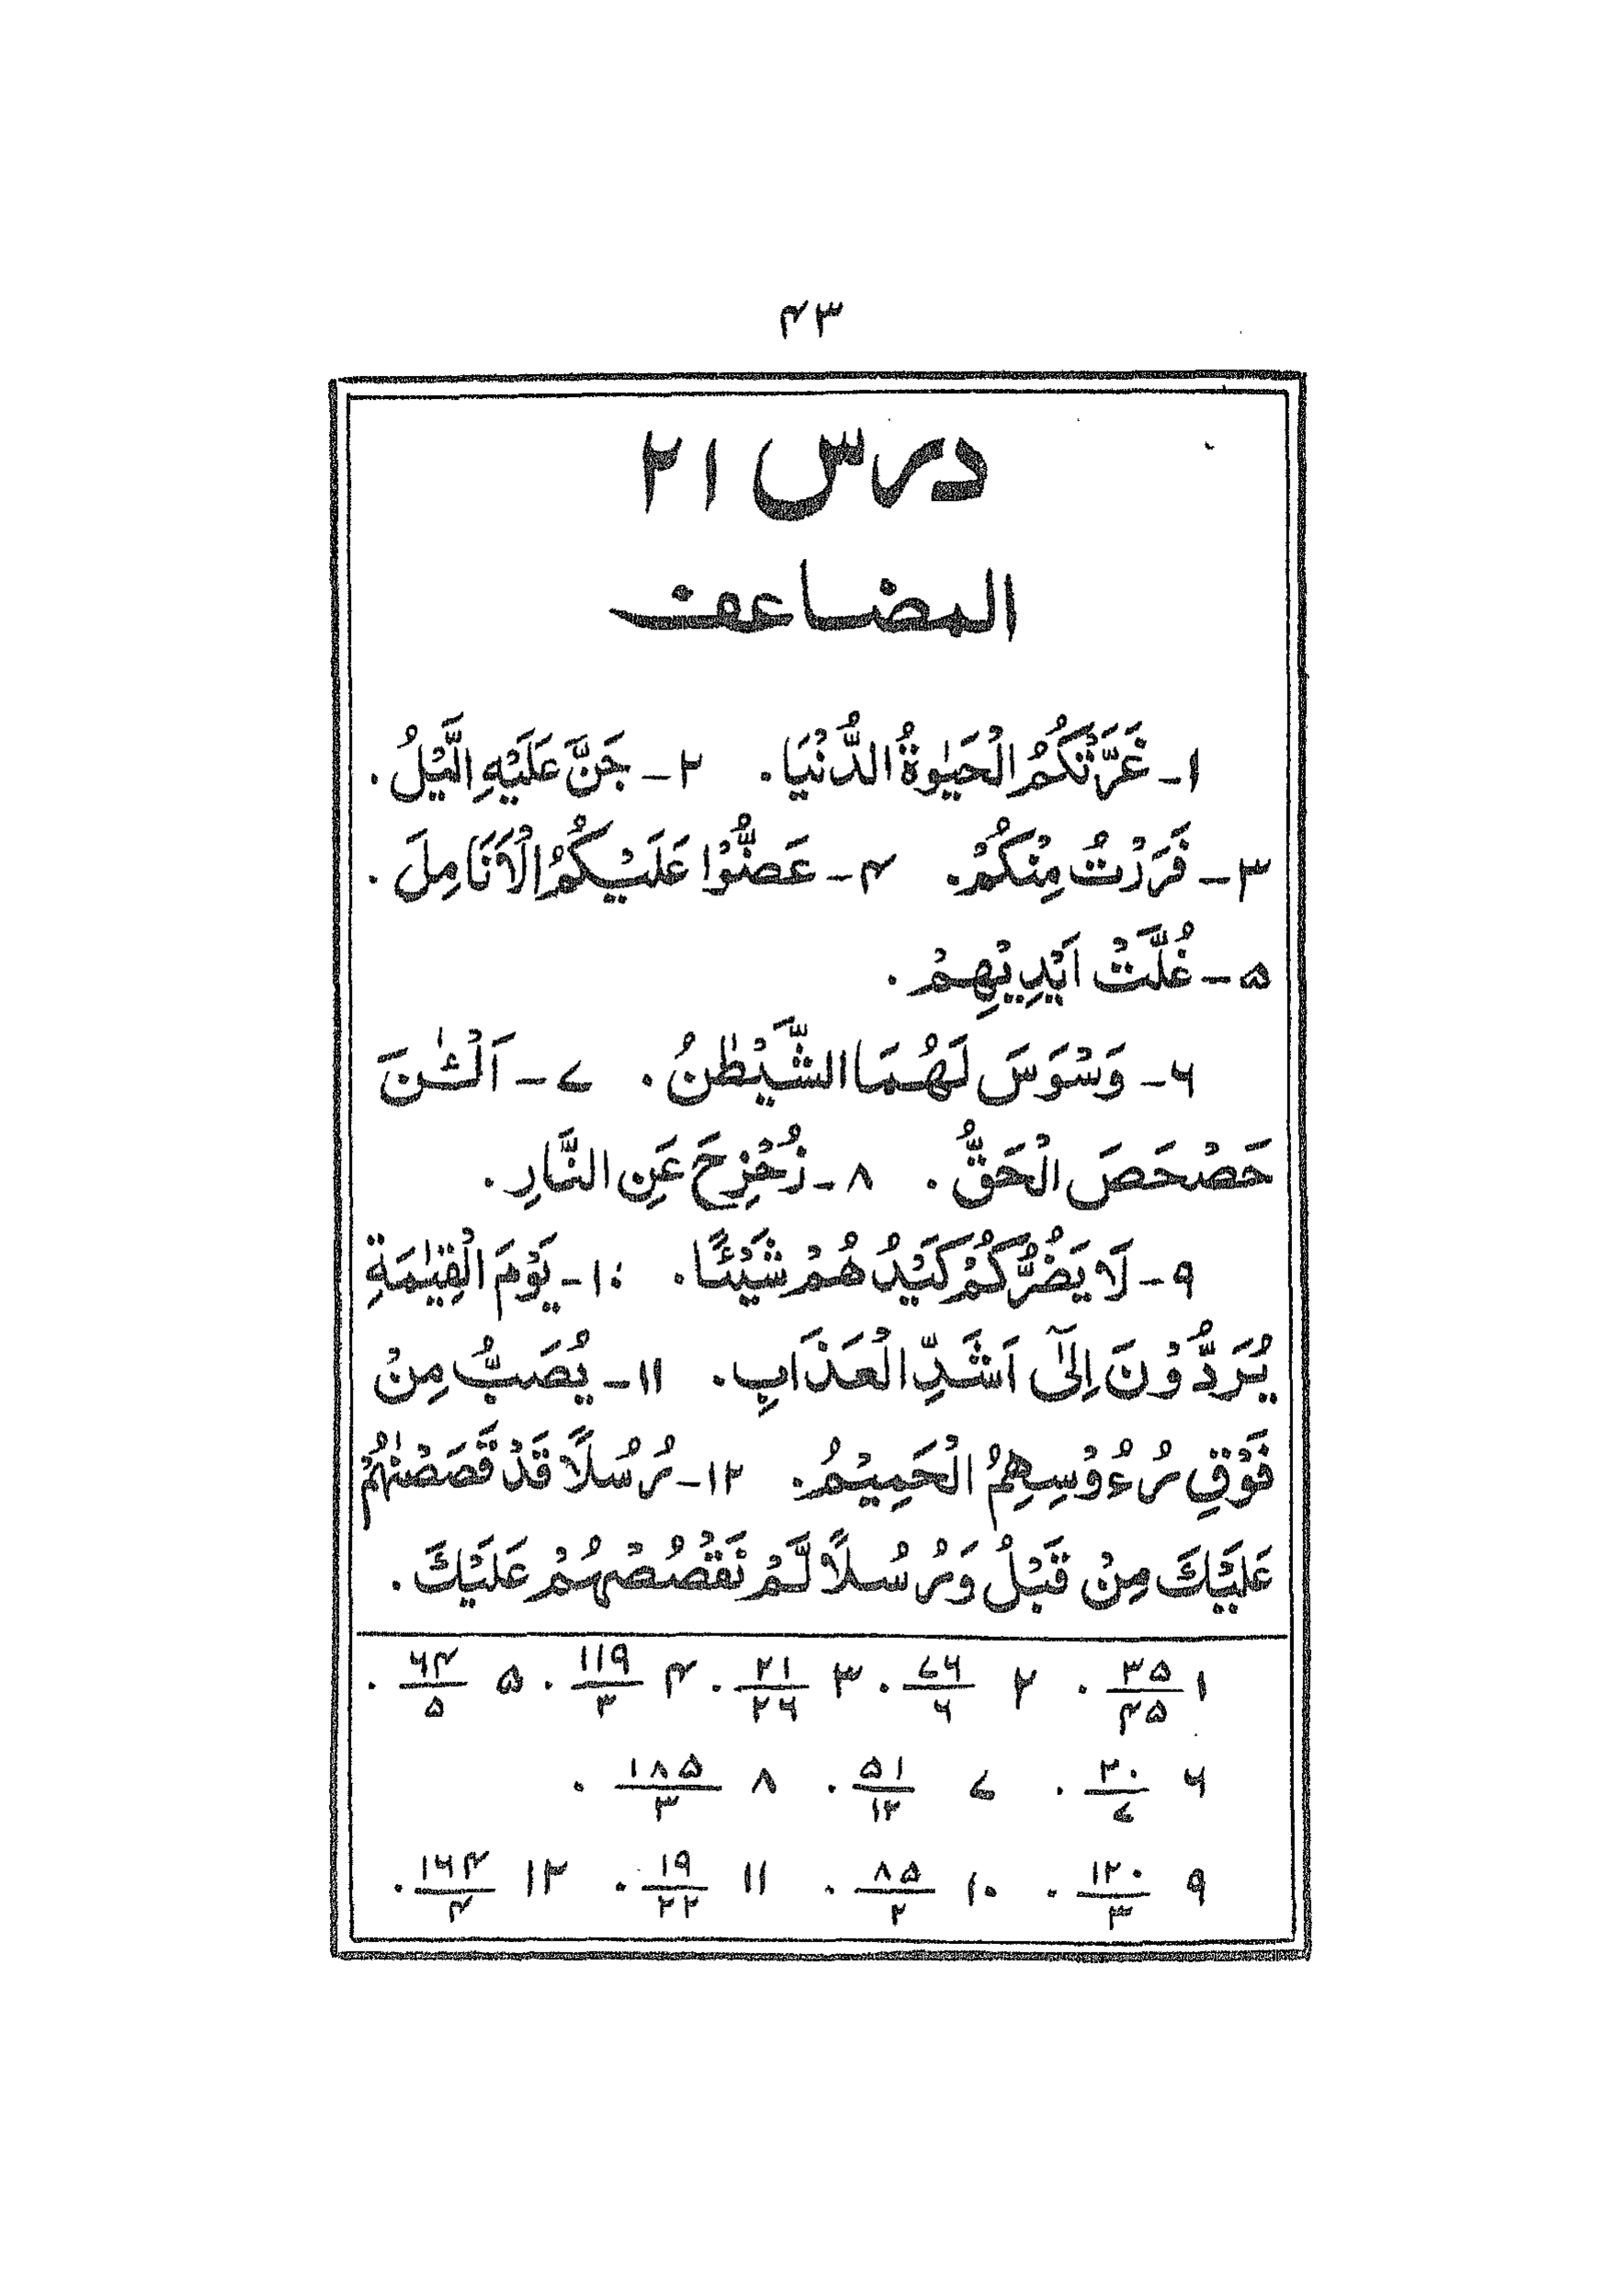 ۴۳
درس ۲۱
المضاعف
۱- غَرَّتْكُمُ الْحَيٰوةُ الدُّنْيَا. ۲- جَنَّ عَلَيْهِ الَّيْلُ.
۳- فَرَرْتُ مِنْكُمْ. ۴- عَضُّوْا عَلَيْكُمُ الْاَنَامِلَ.
۵- غُلَّتْ اَيْدِيْهِمْ.
۶- وَسْوَسَ لَهُمَا الشَّيْطٰنُ. ۷- اَلْـٰٔنَ
حَصْحَصَ الْحَقُّ. ۸- زُحْزِحَ عَنِ النَّارِ.
۹- لَا يَضُرُّكُمْ كَيْدُهُمْ شَيْئًا. ۱۰- يَوْمَ الْقِيٰمَةِ
يُرَدُّوْنَ اِلٰٓى اَشَدِّ الْعَذَابِ. ۱۱- يُصَبُّ مِنْ
فَوْقِ رُءُوْسِهِمُ الْحَمِيْمُ. ۱۲- رُسُلًا قَدْ قَصَصْنٰهُمْ
عَلَيْكَ مِنْ قَبْلُ وَرُسُلًا لَّمْ نَقْصُصْهُمْ عَلَيْكَ.
۱ ۳۵/۴۵. ۲ ۷۶/۶. ۳ ۲۱/۲۶. ۴ ۱۱۹/۳. ۵ ۶۴/۵.
۶ ۲۰/۷. ۷ ۵۱/۱۲. ۸ ۱۸۵/۳.
۹ ۱۲۰/۳. ۱۰ ۸۵/۲. ۱۱ ۱۹/۲۲. ۱۲ ۱۶۴/۴.